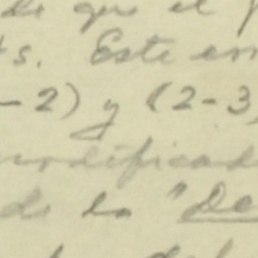 de que el
s. Este
-2) y (2-3)
modificad
de la "De